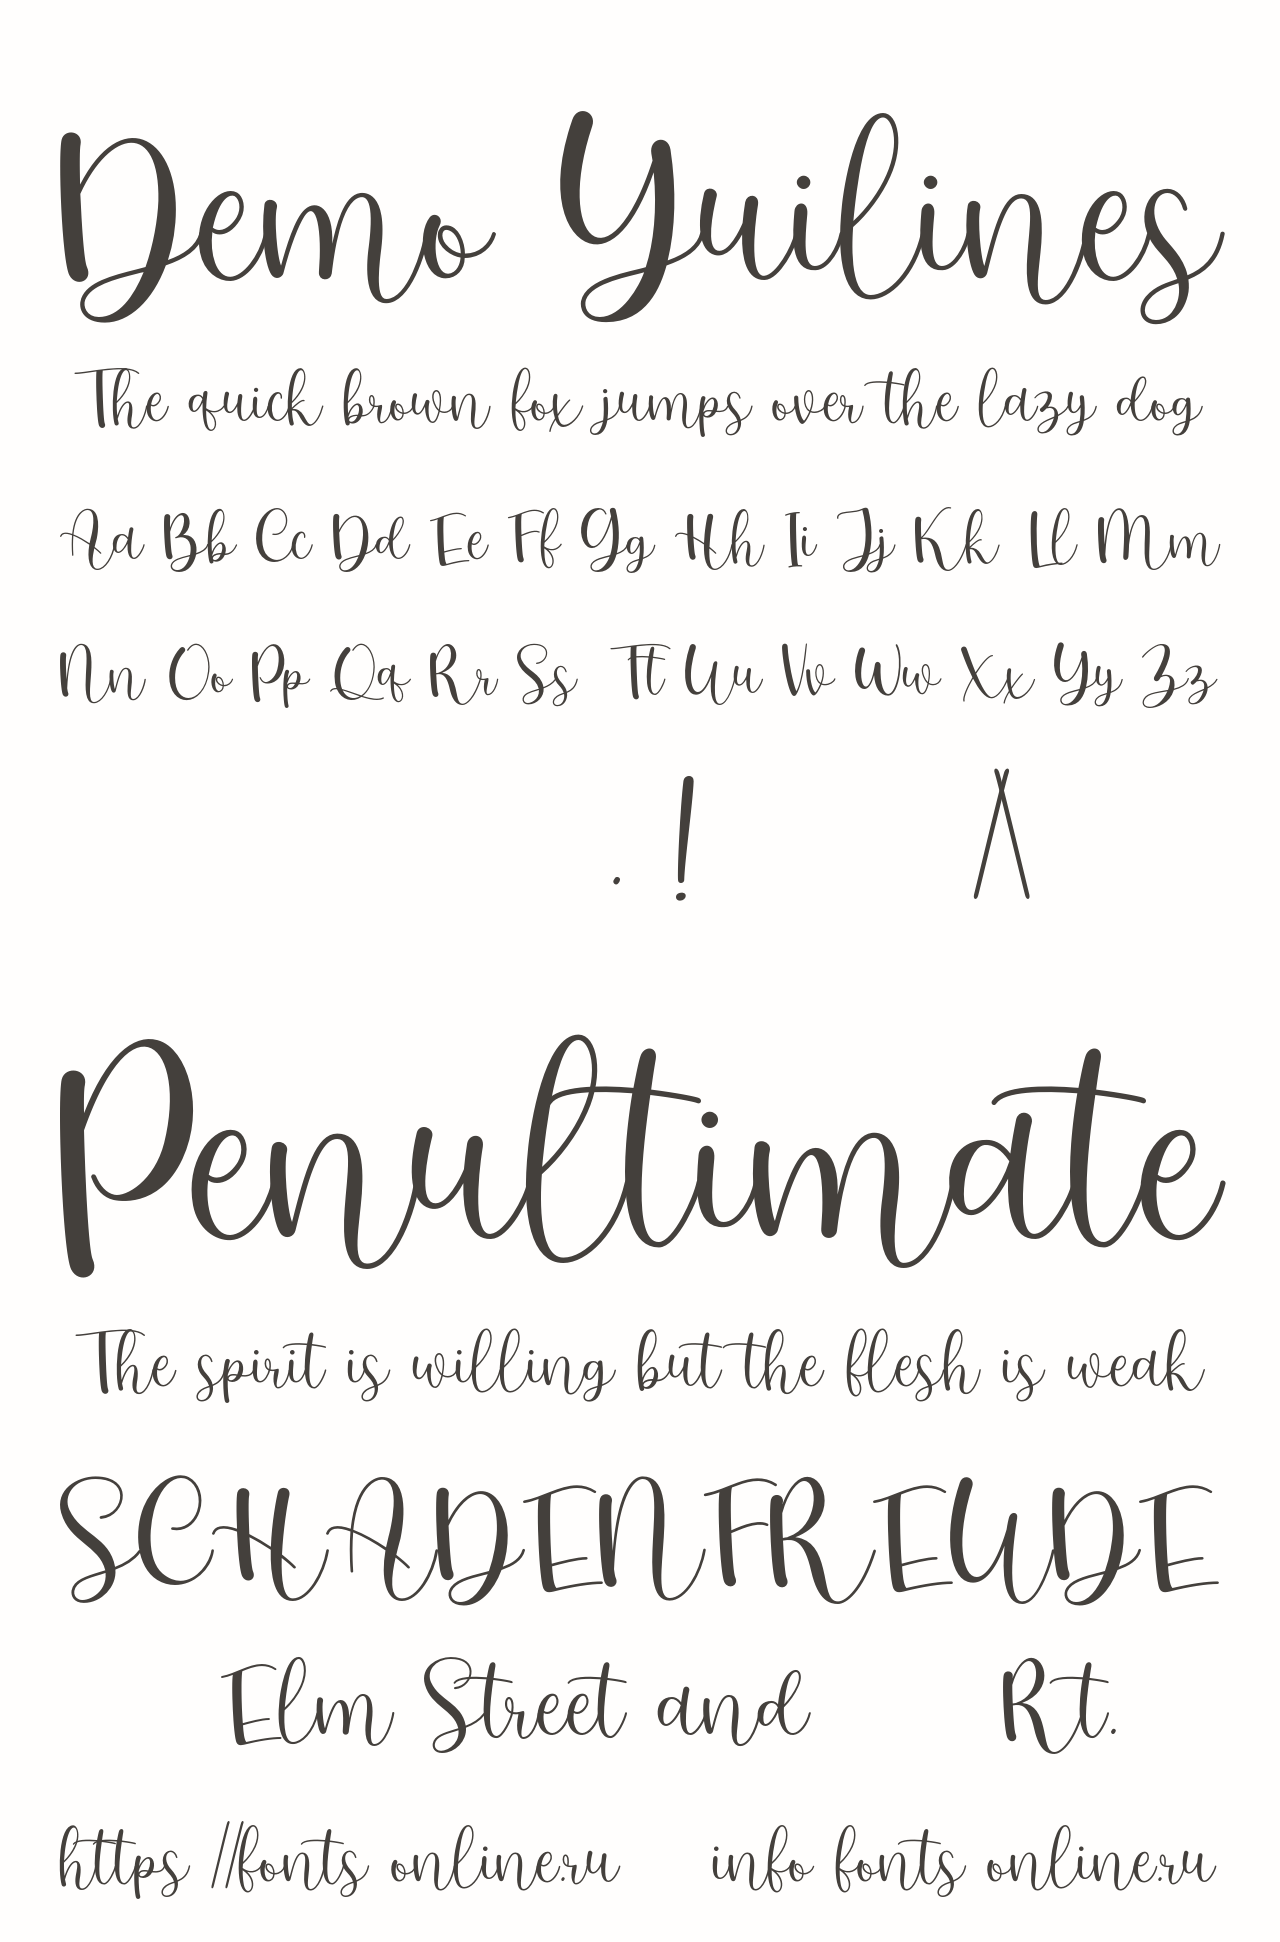 Demo Yuilines
The quick brown fox jumps over the lazy dog
Aa Bb Cc Dd Ee Ff Gg Hh Ii Jj Kk Ll Mm
Nn Oo Pp Qq Rr Ss Tt Uu Vv Ww Xx Yy Zz
. ! /\
Penultimate
The spirit is willing but the flesh is weak
SCHADENFREUDE
Elm Street and Rt.
https //fonts online.ru info fonts online.ru